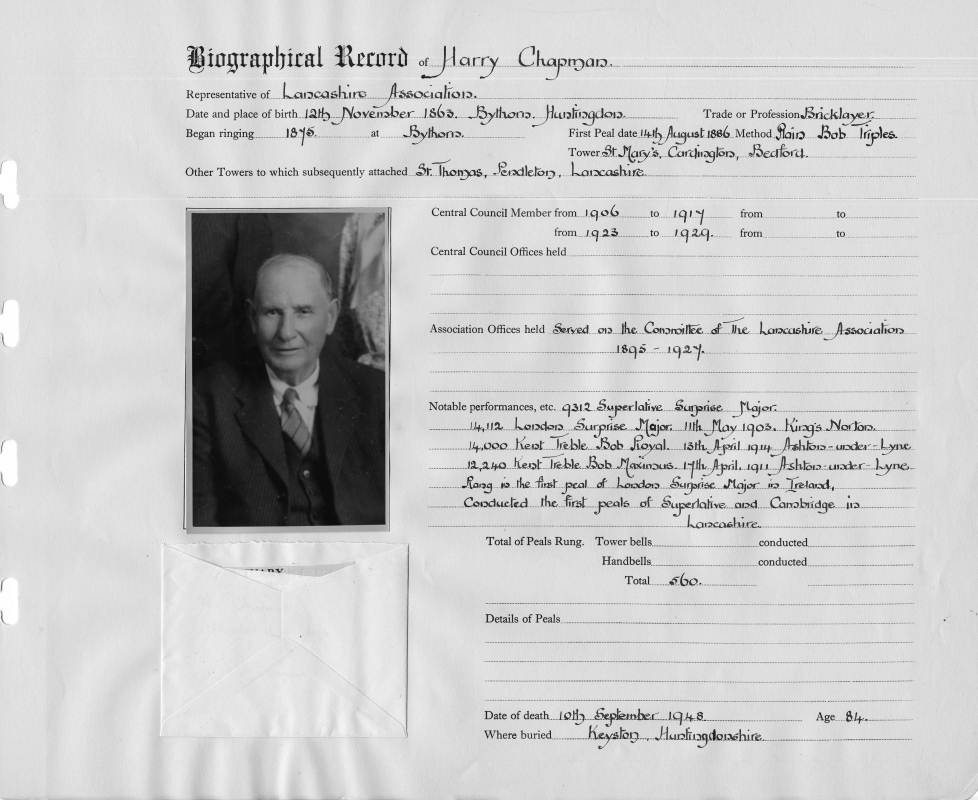 Biographical Record of Harry Chapman.
Representative of Lancashire Association.
Date and place of birth 12th November 1863. Bythorn. Huntingdon. Trade or Profession Bricklayer.
Began ringing 1875. at Bythorn. First Peal date 14th August 1886 Method Plain Bob Triples.
Tower St. Mary's, Cardington, Bedford.
Other Towers to which subsequently attached St. Thomas, Pendleton, Lancashire
Central Council Member from 1906 to 1917 from to
from 1923 to 1929. from to
Central Council Offices held
Association Offices held Served on the Committee of The Lancashire Association
1895 - 1927.
Notable performances, etc. 9312 Superlative Surprise Major.
14,112 London Surprise Major. 11th May 1903. King's Norton.
14,000 Kent Treble Bob Royal. 13th April 1914 Ashton-under-Lyne
12,240 Kent Treble Bob Maximus. 17th April. 1911 Ashton-under-Lyne.
Rang in the first peal of London Surprise Major in Ireland,
Conducted the first peals of Superlative and Cambridge in
Lancashire.
Total of Peals Rung. Tower bells conducted
Handbells conducted
Total 560.
Details of Peals
Date of death 10th September 1948 Age 84.
Where buried Keyston, Huntingdonshire.